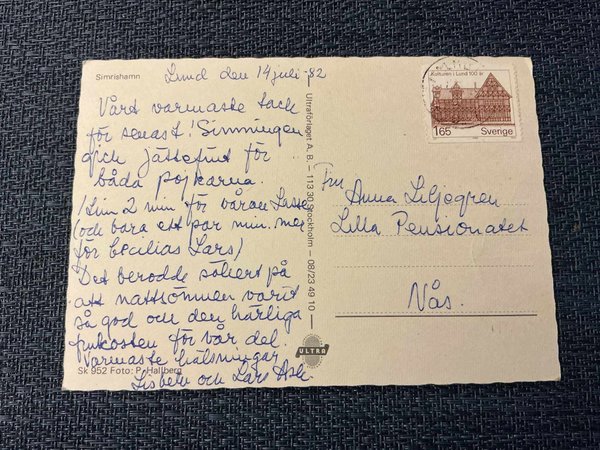 Simrishamn
Lund den 14 juli -82
Vårt varmaste tack
för senast! Simningen
gick jättefint för
båda pojkarna.
/1 tim 2 min för våran Lasse
(och bara ett par min. mer
för Cecilias Lars)
Det berodde säkert på
att nattsömnen varit
så god och den härliga
frukosten för vår del.
Varmaste hälsningar
Lisbeth och Lars
Sk 952 Foto: P. Hallberg
Ultraförlaget A.B. — 113 30 Stockholm — 08/23 49 10
ULTRA
Kulturen i Lund 100 år
165 Sverige
Fru
Anna Liljegren
Lilla Pensionatet
Vås.